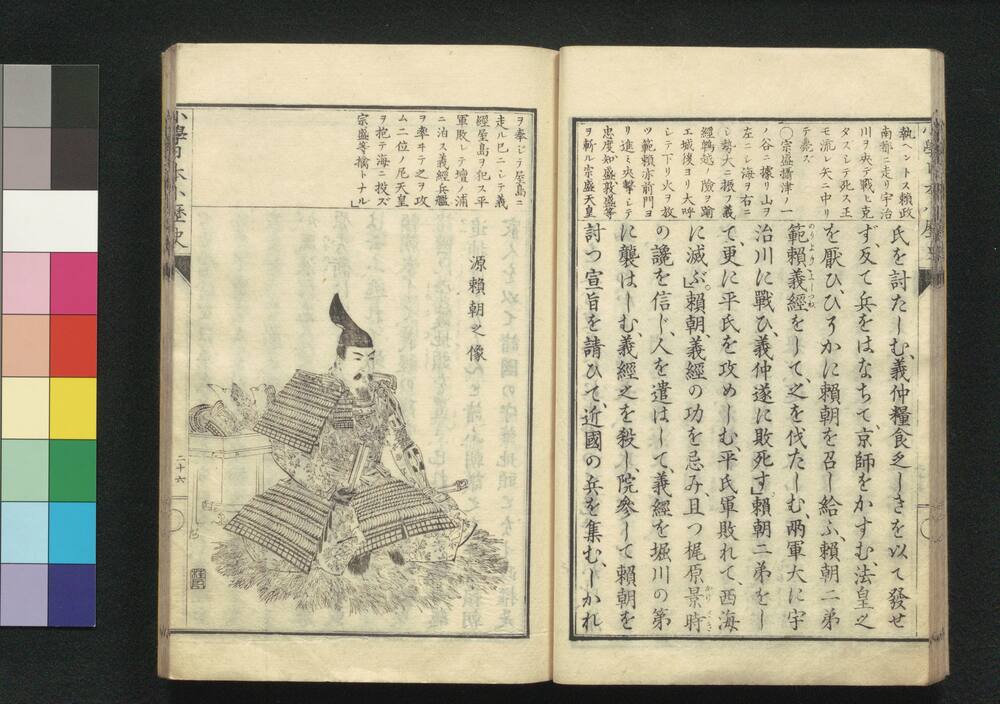 執ヘントス賴政
南都ニ走リ宇治
川ヲ夾テ戰ヒ克
タスシテ死ス王
モ流レ矢ニ中リ
テ薨ズ
〇宗盛攝津ノ一
ノ谷ニ據リ山ヲ
左ニシ海ヲ右ニ
シ勢大ニ振フ義
經鵯越ノ險ヲ踰
エ城後ヨリ大呼
シテ下リ火ヲ放
ツ範賴亦前門ヨ
リ進ミ夾擊シテ
忠度知盛敦盛等
ヲ斬ル宗盛天皇
氏を討たしむ、義仲糧食乏しきを以て發せ
ず、反て兵をはなちて、京師をかすむ、法皇之
を厭ひ、ひそかに賴朝を召し給ふ、賴朝二弟
範賴義經をして、之を伐たしむ、兩軍大に宇
治川に戰ひ、義仲遂に敗死す」賴朝二弟をし
て、更に平氏を攻めしむ平氏軍敗れて、西海
に滅ぶ」賴朝、義經の功を忌み、且つ梶原景時
の讒を信じ、人を遣はして、義經を堀川の第
に襲はしむ、義經之を殺し、院參して賴朝を
討つ宣旨を請ひて、近國の兵を集む、しかれ
ヲ奉シテ屋島ニ
走ル已ニシテ義
經屋島ヲ犯ス平
軍敗レテ壇ノ浦
ニ泊ス義經兵艦
ヲ率ヰテ之ヲ攻
ム二位ノ尼天皇
ヲ抱テ海ニ投ズ
宗盛等擒トナル」
源賴朝之像
小學日本小歷史
二十六